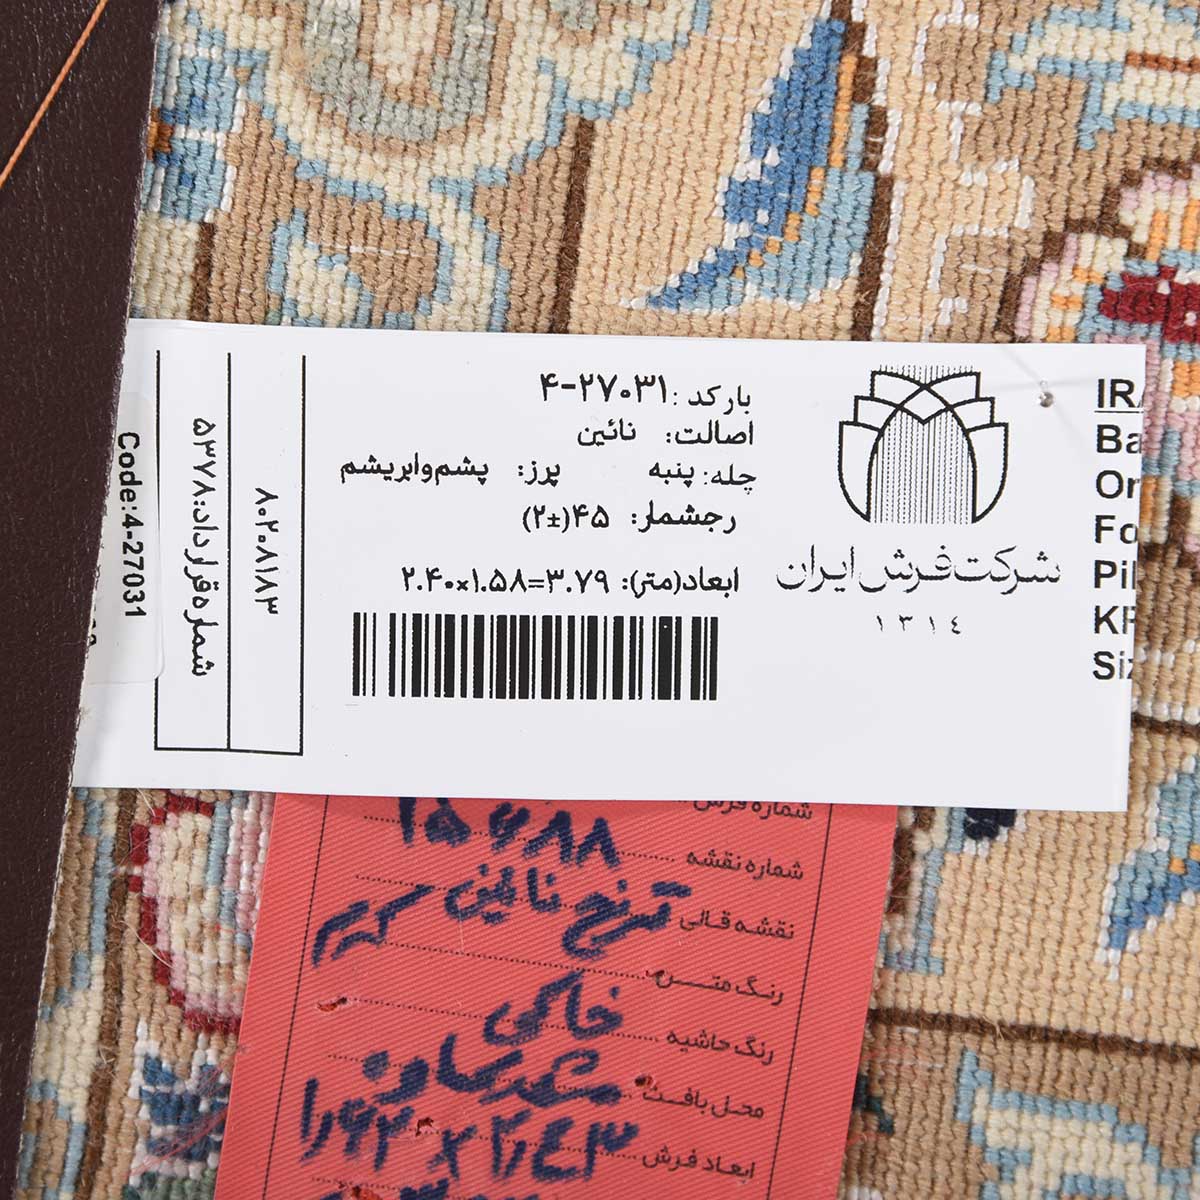 بارکد: ۴-۲۷۰۳۱
اصالت: نائین
چله: پنبه پرز: پشم‌وابریشم
رجشمار: ۴۵(±۲)
ابعاد(متر): ۲.۴۰x۱.۵۸=۳.۷۹
شرکت فرش ایران
۱۳۱۴
۸۰۲۰۸۱۸۳
شماره قرارداد: ۵۳۷۸
Code:4-27031
IRA
Ba
Or
Fo
Pil
KP
Siz
شماره فرش
شماره نقشه ۱۵۶۸۸
نقشه قالی ترنج نائین
رنگ متن کرم
رنگ حاشیه خاکی
محل بافت
ابعاد فرش ۲٫۴۳ x ۱٫۶۲